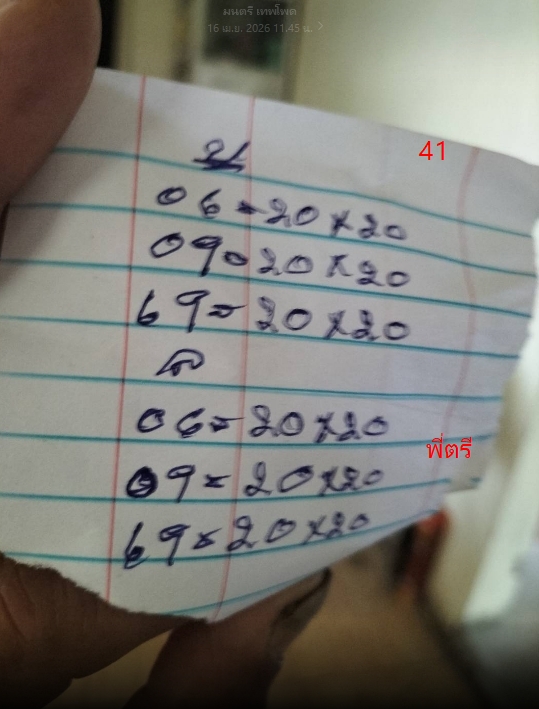 มนตรี เทพโพต
16 เม.ย. 2026 11.45 น.
41
บ
06=20×20
09=20×20
69=20×20
ล
06=20×20
พี่ตรี
09=20×20
69=20×20